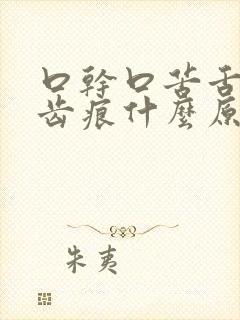 口幹口苦舌
齿痕什麼原
朱夷